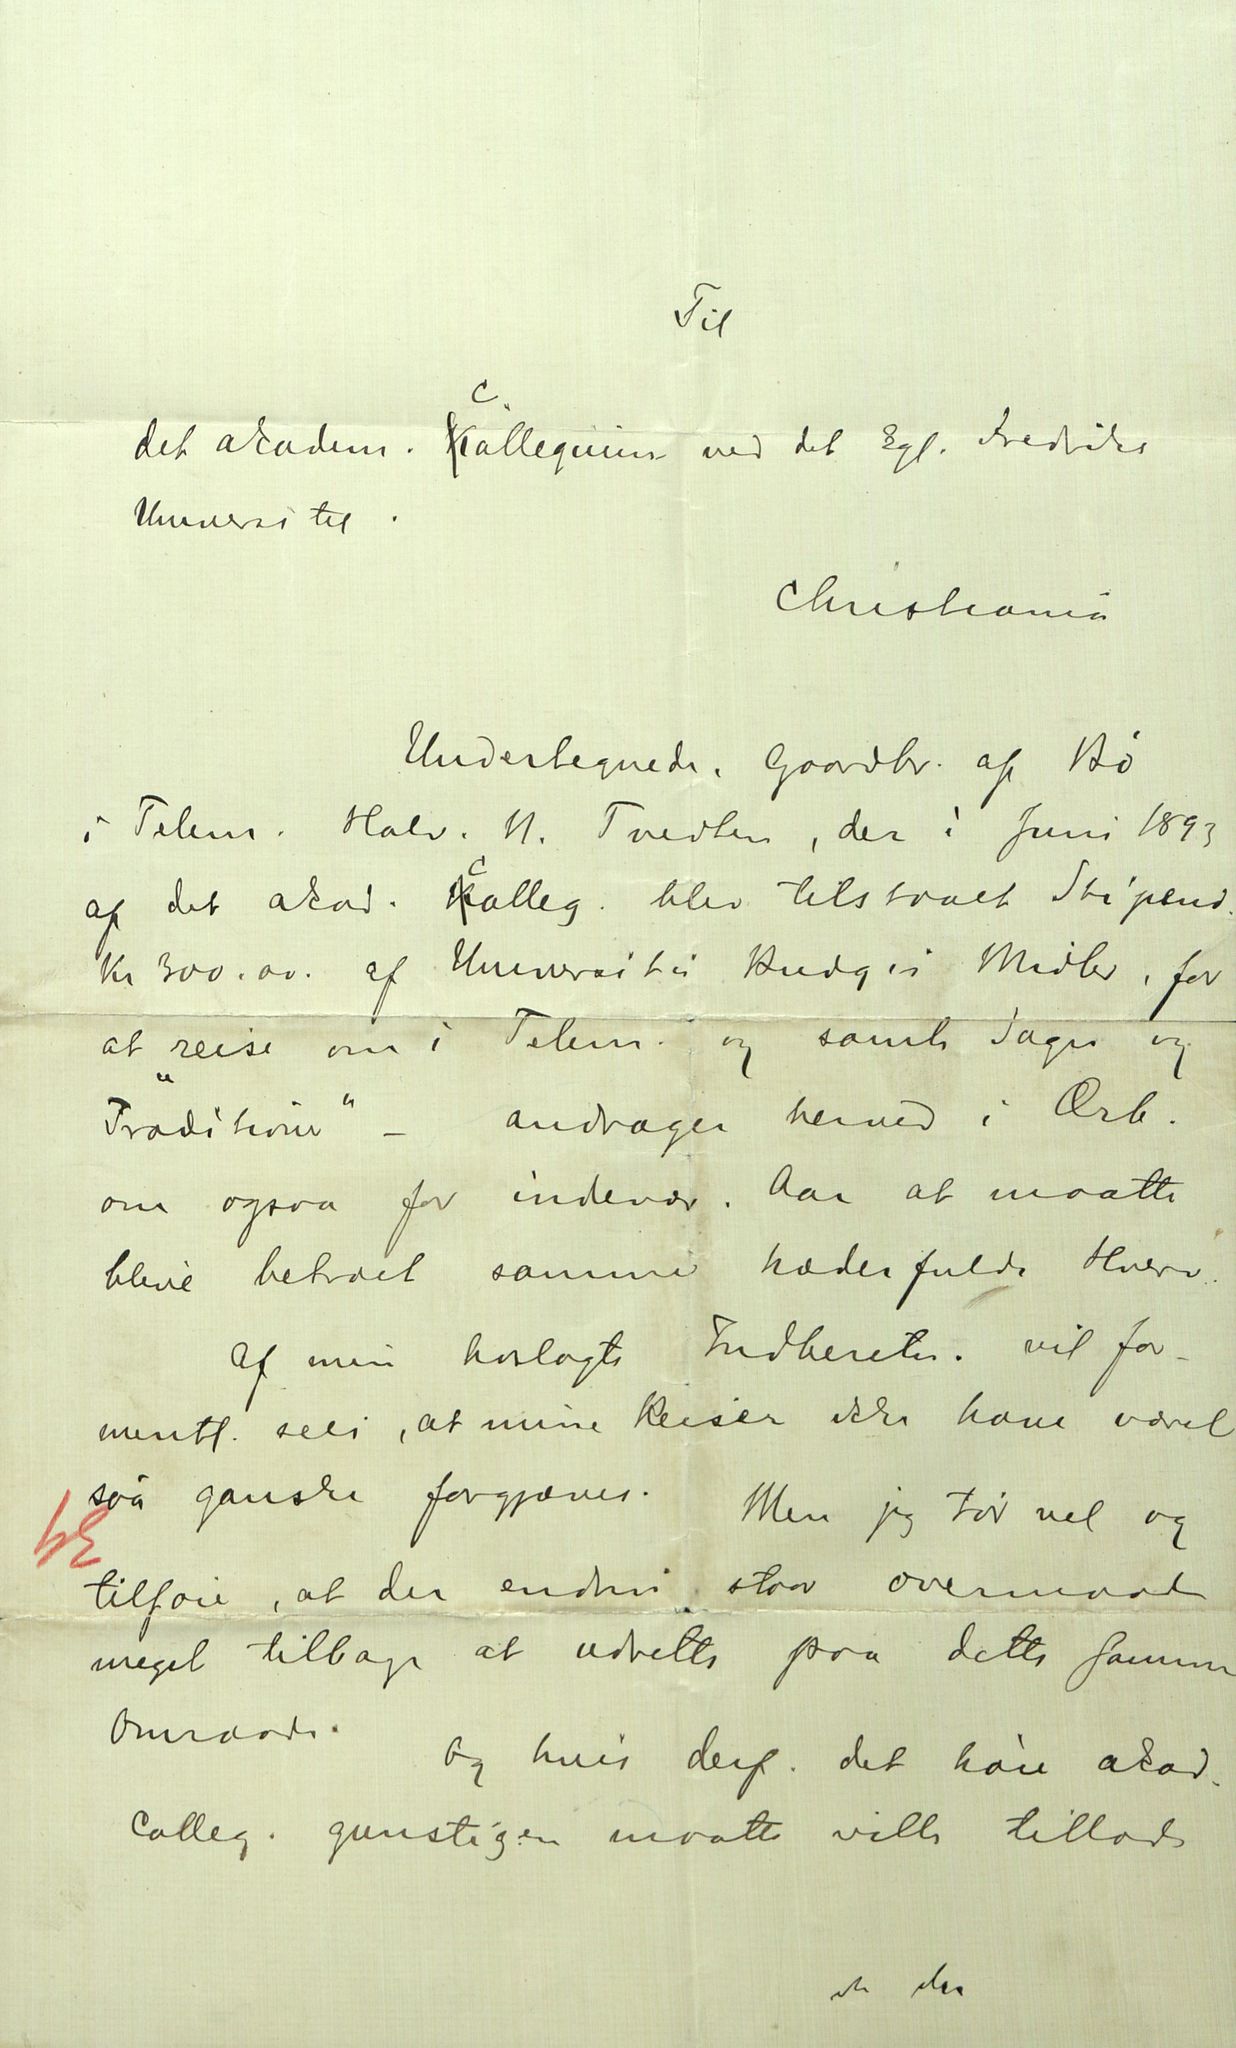 Til
det akadem. Collegium ved det kgl. Fredriks
Universitet.
Christiania
Undertegnede, Gaardbr. af Bö
i Telem. Halv. N. Tvedten, der i Juni 1893
af det akad. Colleg. blev tilstaaet Stipend.
Kr 300.00. af Universitets Budgets Midler, for
at "reise om i Telem. og samle Sagn og
Traditioner" – andrager herved i Ærb.
om ogsaa for indevær. Aar at maatte
blive betroet samme hæderfulde Hverv.
Af min hoslagte Indberetn. vil for-
mentl. sees, at mine Reiser ikke have været
saa ganske forgjæves. Men jeg tør vel og
tilføie, at der endnu staar overmaade
meget tilbage at udrette paa dette samme
Omraade.
Og hvis derf. det høie akad.
Colleg. gunstigen maatte ville tillade